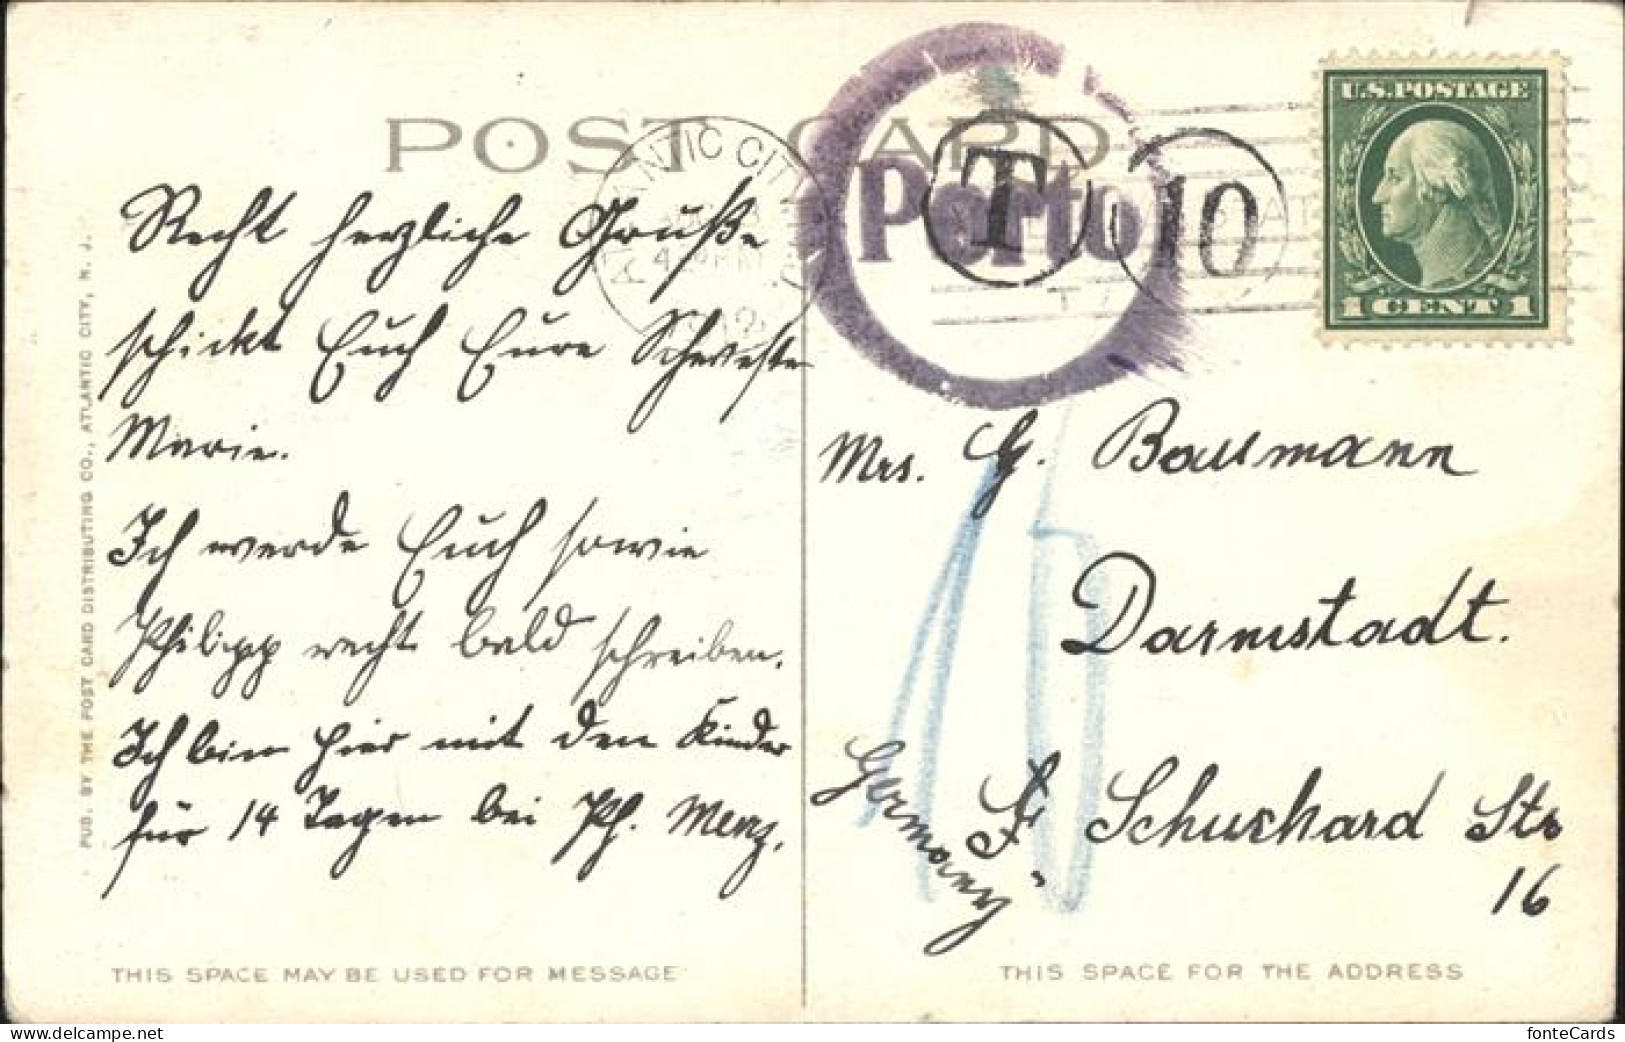 POST CARD
ATLANTIC CITY
1912
Porto
T
10
U.S. POSTAGE
1 CENT 1
Recht herzliche Grüße
schickt Euch Eure Schwester
Marie.
Ich werde Euch sowie
Philipp recht bald schreiben.
Ich bin hier mit den Kinder
für 14 Tagen bei Ph. Merz.
Mrs. G. Baumann
Darmstadt.
Schuchard Str
16
Germany
PUB. BY THE POST CARD DISTRIBUTING CO., ATLANTIC CITY, N. J.
THIS SPACE MAY BE USED FOR MESSAGE
THIS SPACE FOR THE ADDRESS
fonteCards
www.delcampe.net